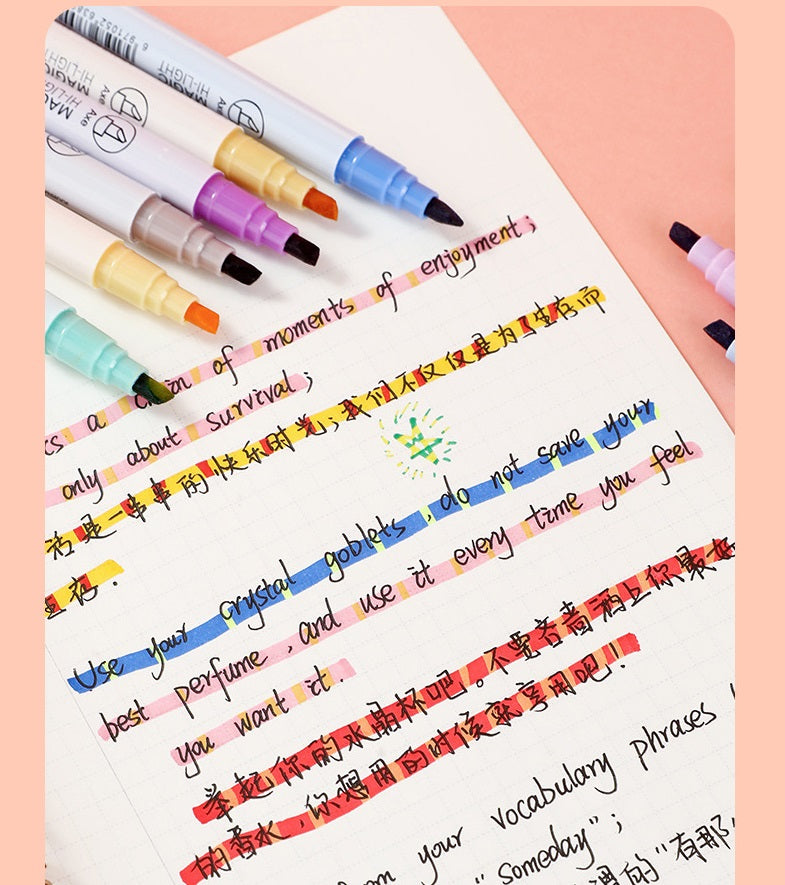 6 971052 636
MAGIC
HI-LIGHT
Axe
MAGIC
HI-LIGHT
Axe
MAGIC
HI-LIGHT
Axe
is a chain of moments of enjoyment;
only about survival;
活是一串串的快乐时光;我们不仅仅是为了生存而
生存.
Use your crystal goblets, do not save your
best perfume, and use it every time you feel
you want it.
举起你的水晶杯吧。不要吝啬洒上你最好
的香水,你想用的时候就享用吧!
from your vocabulary phrases
"someday";
的"有那"